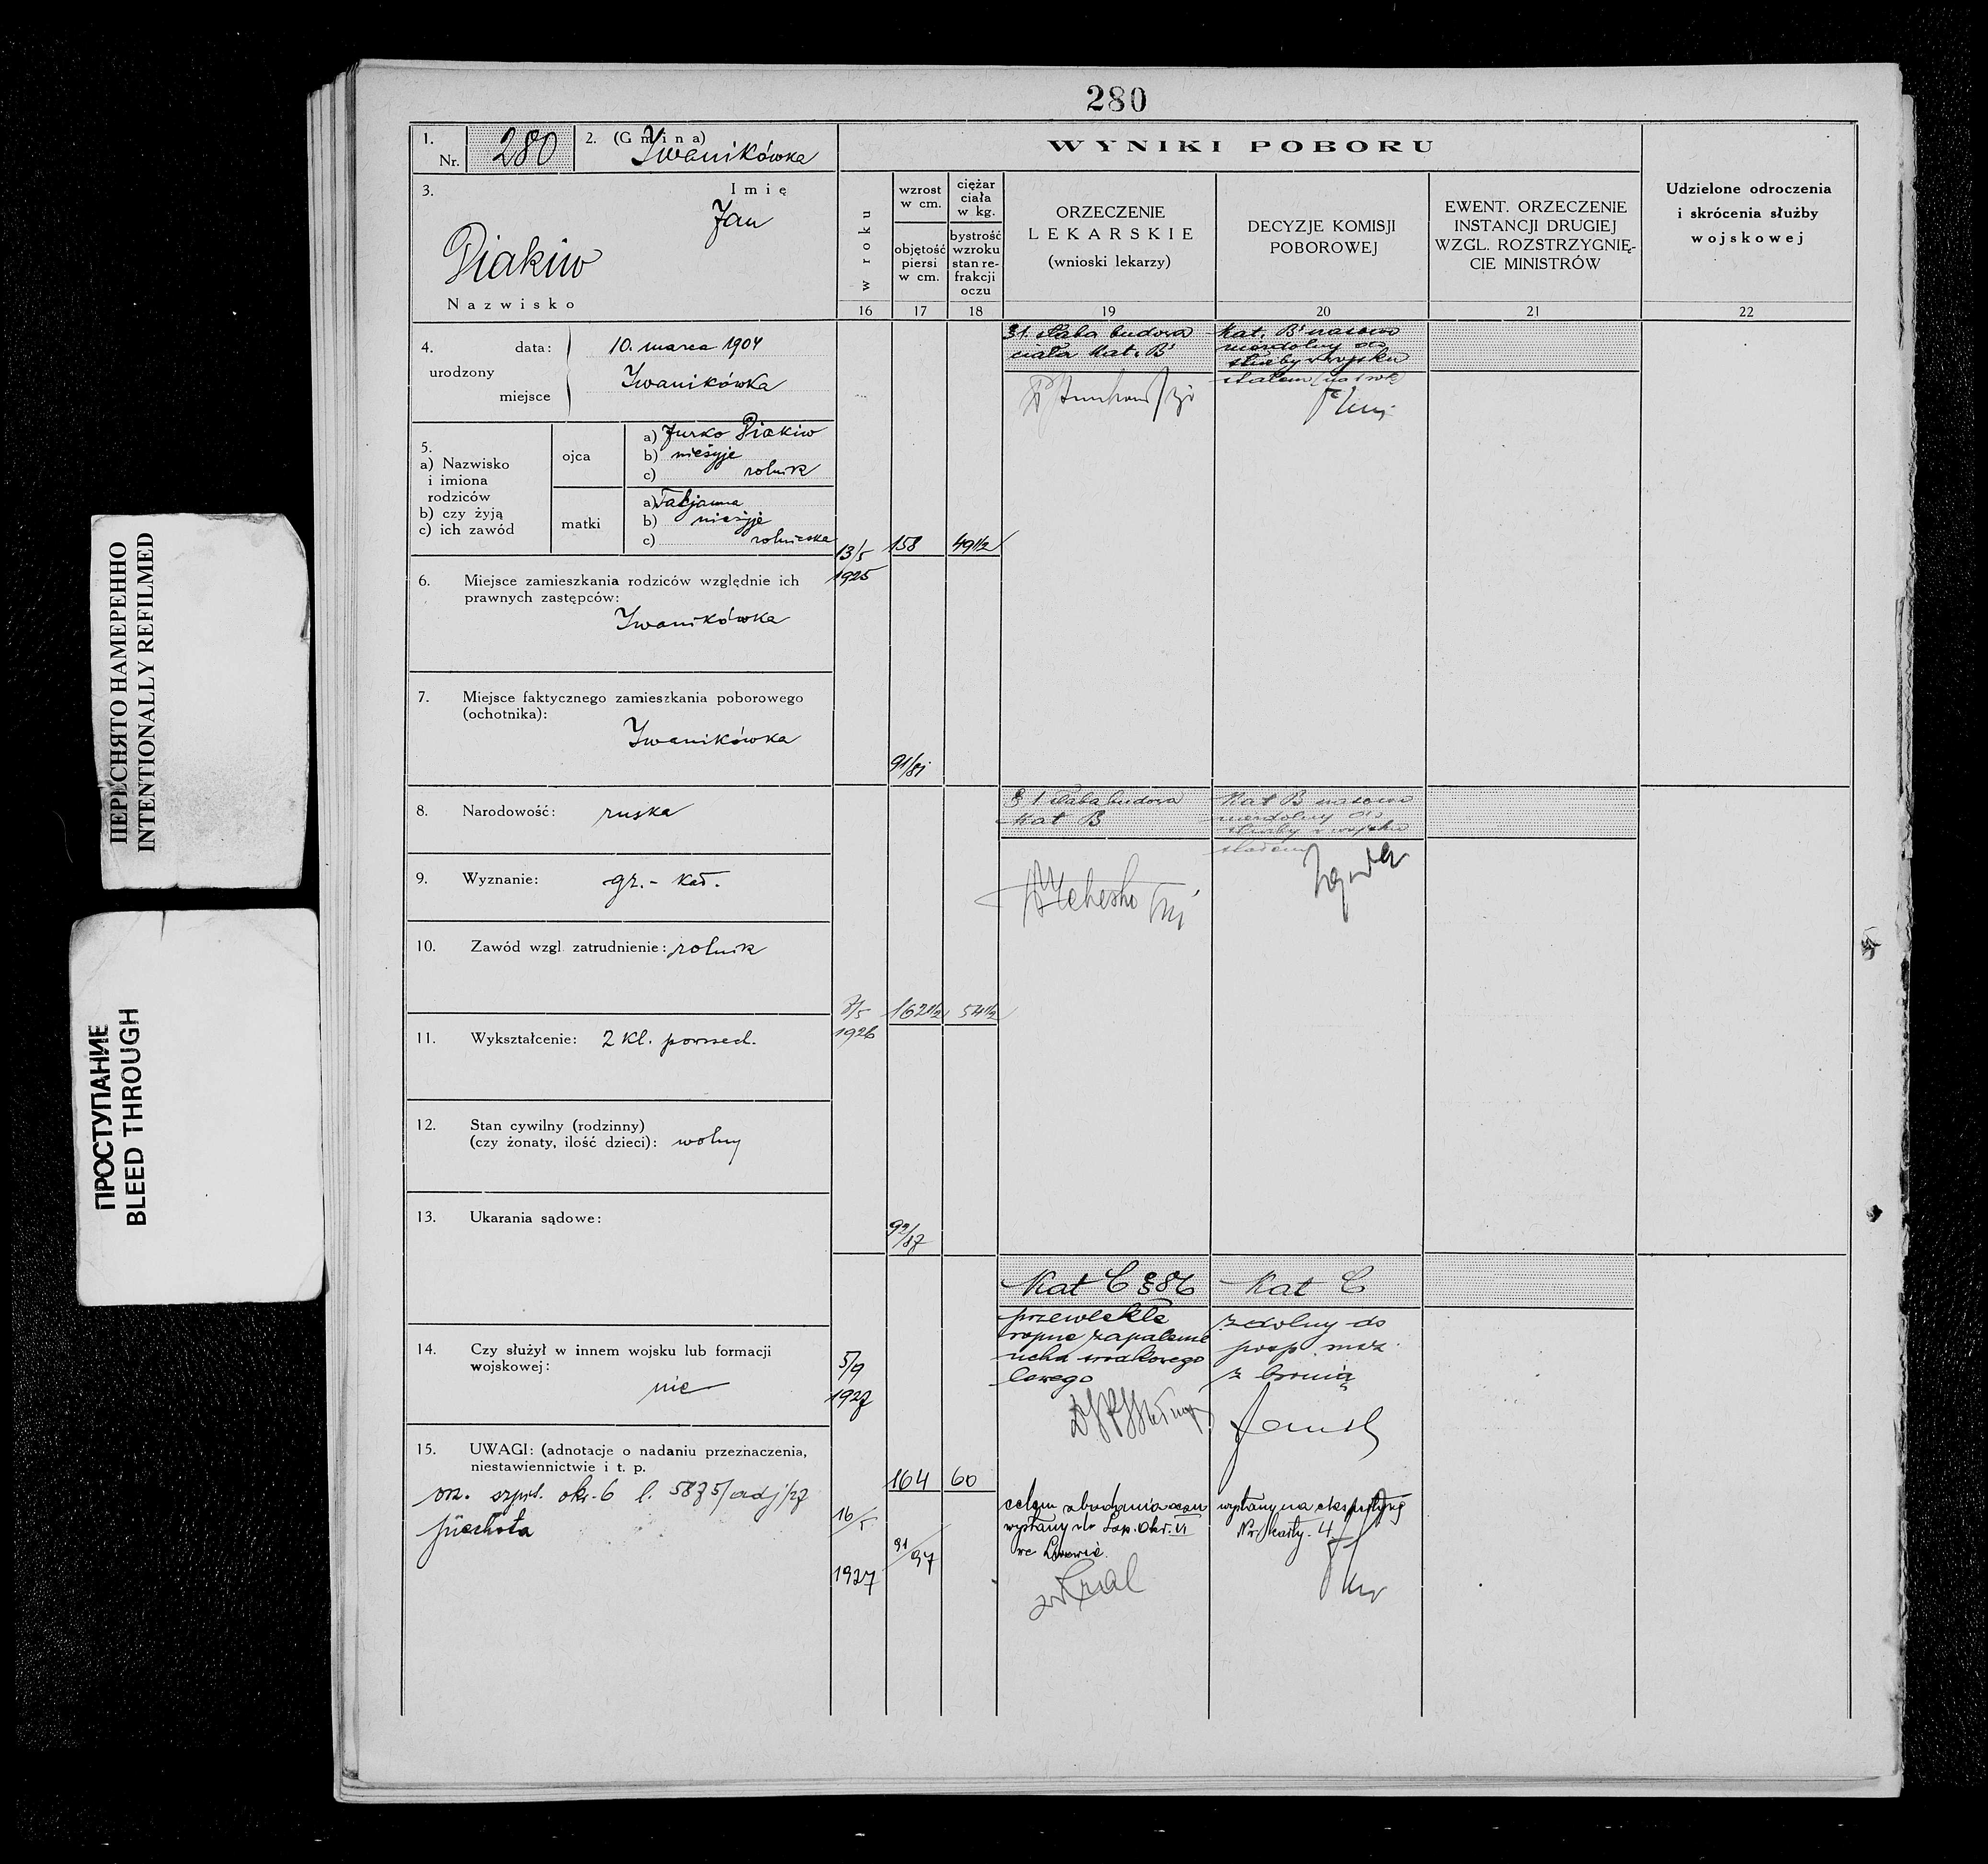 280
1.
Nr. 280
2. (Gmina) Iwanikówka
3.
Imię
Jan
Diakiw
Nazwisko
4.
urodzony
data: 10. marca 1904
miejsce Iwanikówka
5.
a) Nazwisko
i imiona
rodziców
b) czy żyją
c) ich zawód
ojca
a) Jurko Diakiw
b) nieżyje
c) rolnik
matki
a) Tatjanna
b) nieżyje
c) rolniczka
6. Miejsce zamieszkania rodziców względnie ich
prawnych zastępców:
Iwanikówka
7. Miejsce faktycznego zamieszkania poborowego
(ochotnika):
Iwanikówka
8. Narodowość: ruska
9. Wyznanie: gr.- kat.
10. Zawód wzgl. zatrudnienie: rolnik
11. Wykształcenie: 2 kl. powszech.
12. Stan cywilny (rodzinny)
(czy żonaty, ilość dzieci): wolny
13. Ukarania sądowe:
14. Czy służył w innem wojsku lub formacji
wojskowej:
nie
15. UWAGI: (adnotacje o nadaniu przeznaczenia,
niestawiennictwie i t. p.
orz. szpit. okr. 6 l. 5875/adj/27
piechota
WYNIKI POBORU
w roku
16
wzrost
w cm.
objętość
piersi
w cm.
17
ciężar
ciała
w kg.
bystrość
wzroku
stan re-
frakcji
oczu
18
ORZECZENIE
LEKARSKIE
(wnioski lekarzy)
19
DECYZJE KOMISJI
POBOROWEJ
20
EWENT. ORZECZENIE
INSTANCJI DRUGIEJ
WZGL. ROZSTRZYGNIĘ-
CIE MINISTRÓW
21
Udzielone odroczenia
i skrócenia służby
wojskowej
22
13/5
1925
158
49 1/2
91/81
§1. słaba budowa
ciała Kat. B
Kat. B czasowo
niezdolny do
służby w wojsku
stałem (na 1 rok)
7/5
1926
162 1/2
54 1/2
92/87
§ 1 słaba budowa
Kat B
Kat B czasowo
niezdolny do
służby w wojsku
stałem
5/9
1927
Kat C §86
przewlekłe
ropne zapalenie
ucha środkowego
lewego
Kat C
zdolny do
posp. rusz.
z bronią
16/5
1927
164
60
91/97
celem zbadania oczu
wysłany do Szp. Okr. VI
we Lwowie.
wysłany na ekspertyzę
Nr. karty. 4
Kral
ПЕРЕСНЯТО НАМЕРЕННО
INTENTIONALLY REFILMED
ПРОСТУПАНИЕ
BLEED THROUGH